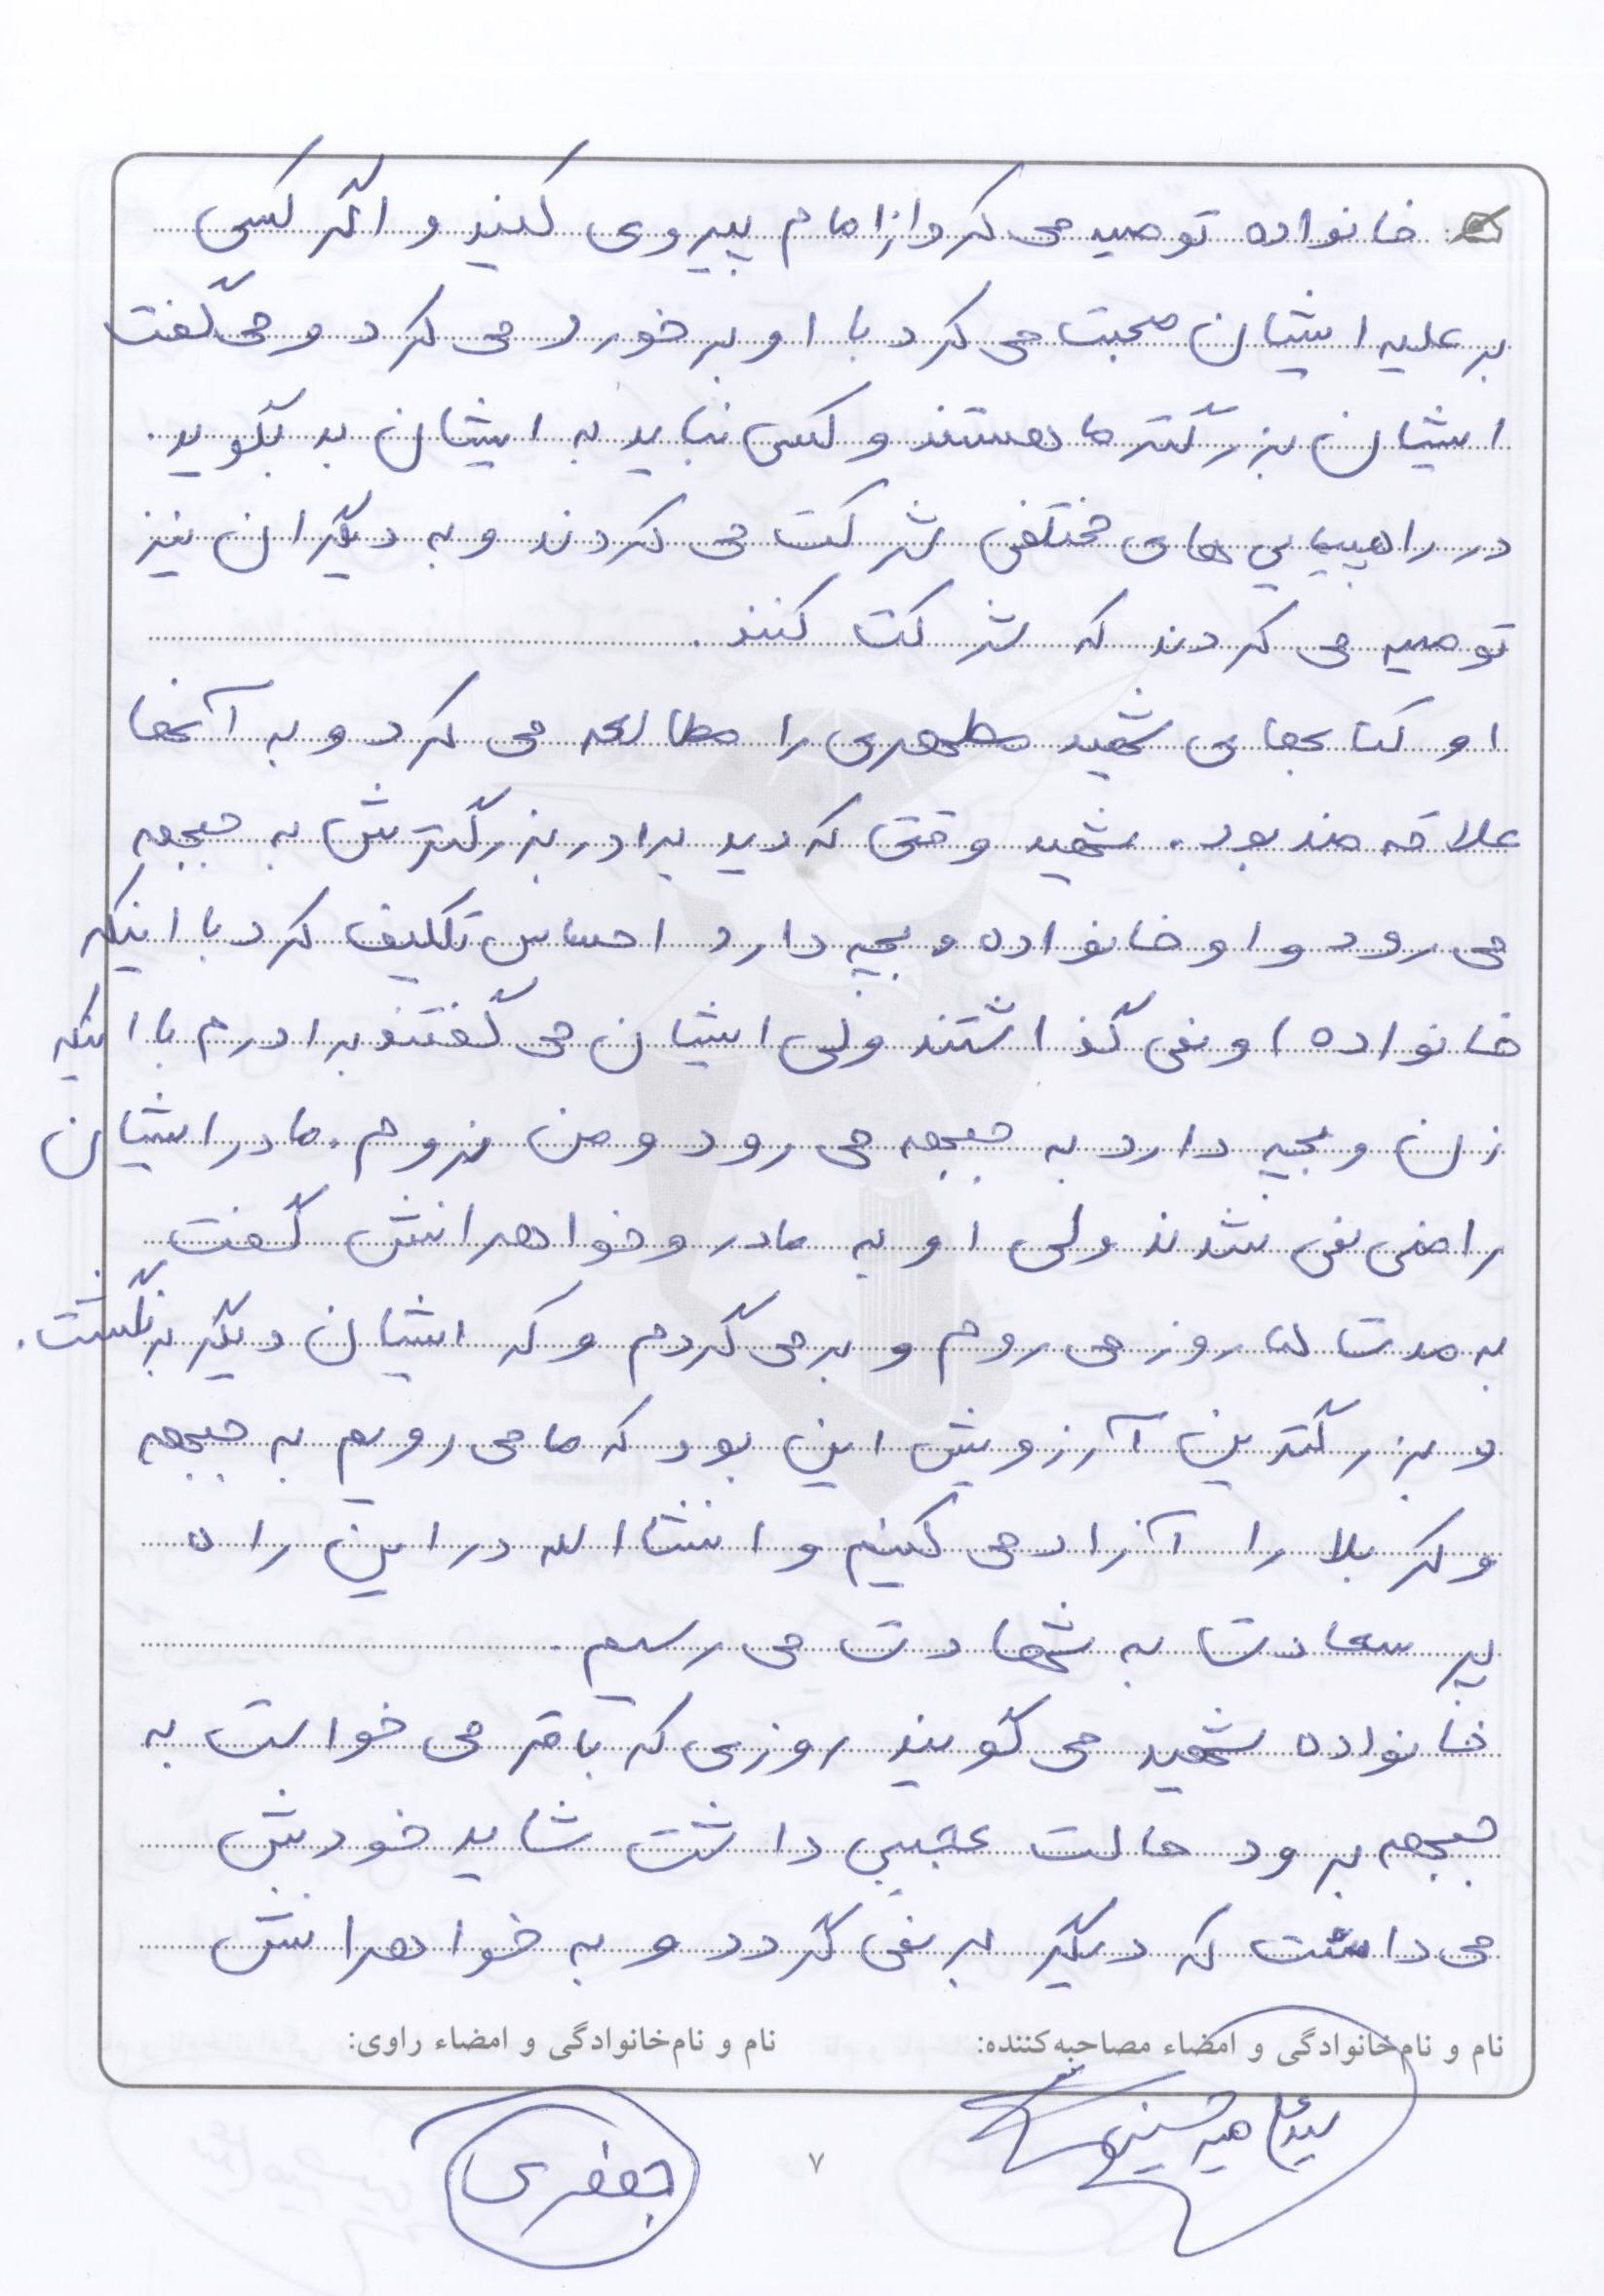 خانواده توصیه می کرد از امام پیروی کنید و اگر کسی
بر علیه ایشان صحبت می کرد با او برخورد می کرد و می گفت
ایشان بزرگتر ما هستند و کسی نباید به ایشان بد بگوید.
در راهپیمایی های مختلفی شرکت می کردند و به دیگران نیز
توصیه می کردند که شرکت کنند.
او کتابهای شهید مطهری را مطالعه می کرد و به آنها
علاقه مند بود. شهید وقتی که دید برادر بزرگترش به جبهه
می رود و او خانواده و بچه دارد احساس تکلیف کرد با اینکه
خانواده او نمی گذاشتند ولی ایشان می گفتند برادرم با اینکه
زن و بچه دارد به جبهه می رود و من نروم. مادر ایشان
راضی نمی شدند ولی او به مادر و خواهرانش گفت
به مدت روز می روم و بر می گردم و که ایشان دیگر برنگشت.
و بزرگترین آرزویش این بود که ما می رویم به جبهه
و کربلا را آزاد می کنیم و انشاالله در این راه
پر سعادت به شهادت می رسیم.
خانواده شهید می گویند روزی که باقر می خواست به
جبهه برود حالت عجیبی داشت شاید خودش
می دانست که دیگر بر نمی گردد و به خواهرانش
نام و نام‌خانوادگی و امضاء مصاحبه‌کننده: نام و نام‌خانوادگی و امضاء راوی:
جعفری
۷